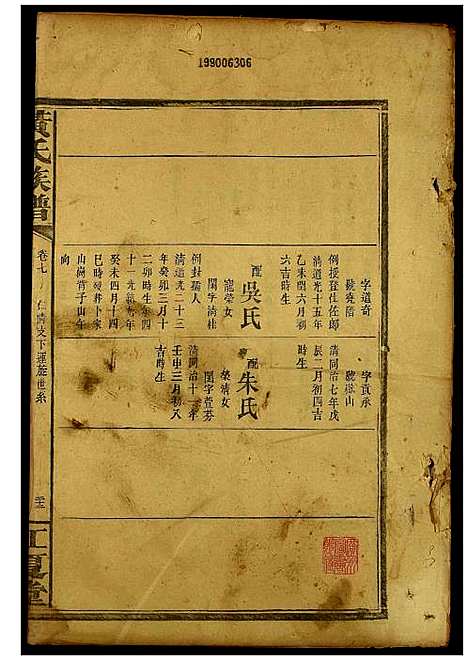 199006306
字道奇
號堯階
例授登仕佐郎
清道光十五年
乙未閏六月初
六吉時生
配吳氏
寵榮女
閨字漪桂
例封孺人
清道光二十三
年癸卯三月十
二卯時生
光緒九年
癸未四月十四
巳時歿葬卜家
山崗背子山午
向
字貢承
號樾山
清同治七年戊
辰二月初四吉
時生
配朱氏
榮清女
閨字萱芬
清同治十一年
壬申三月初八
吉時生
黃氏族譜
卷七
支下運旌世系
江夏堂